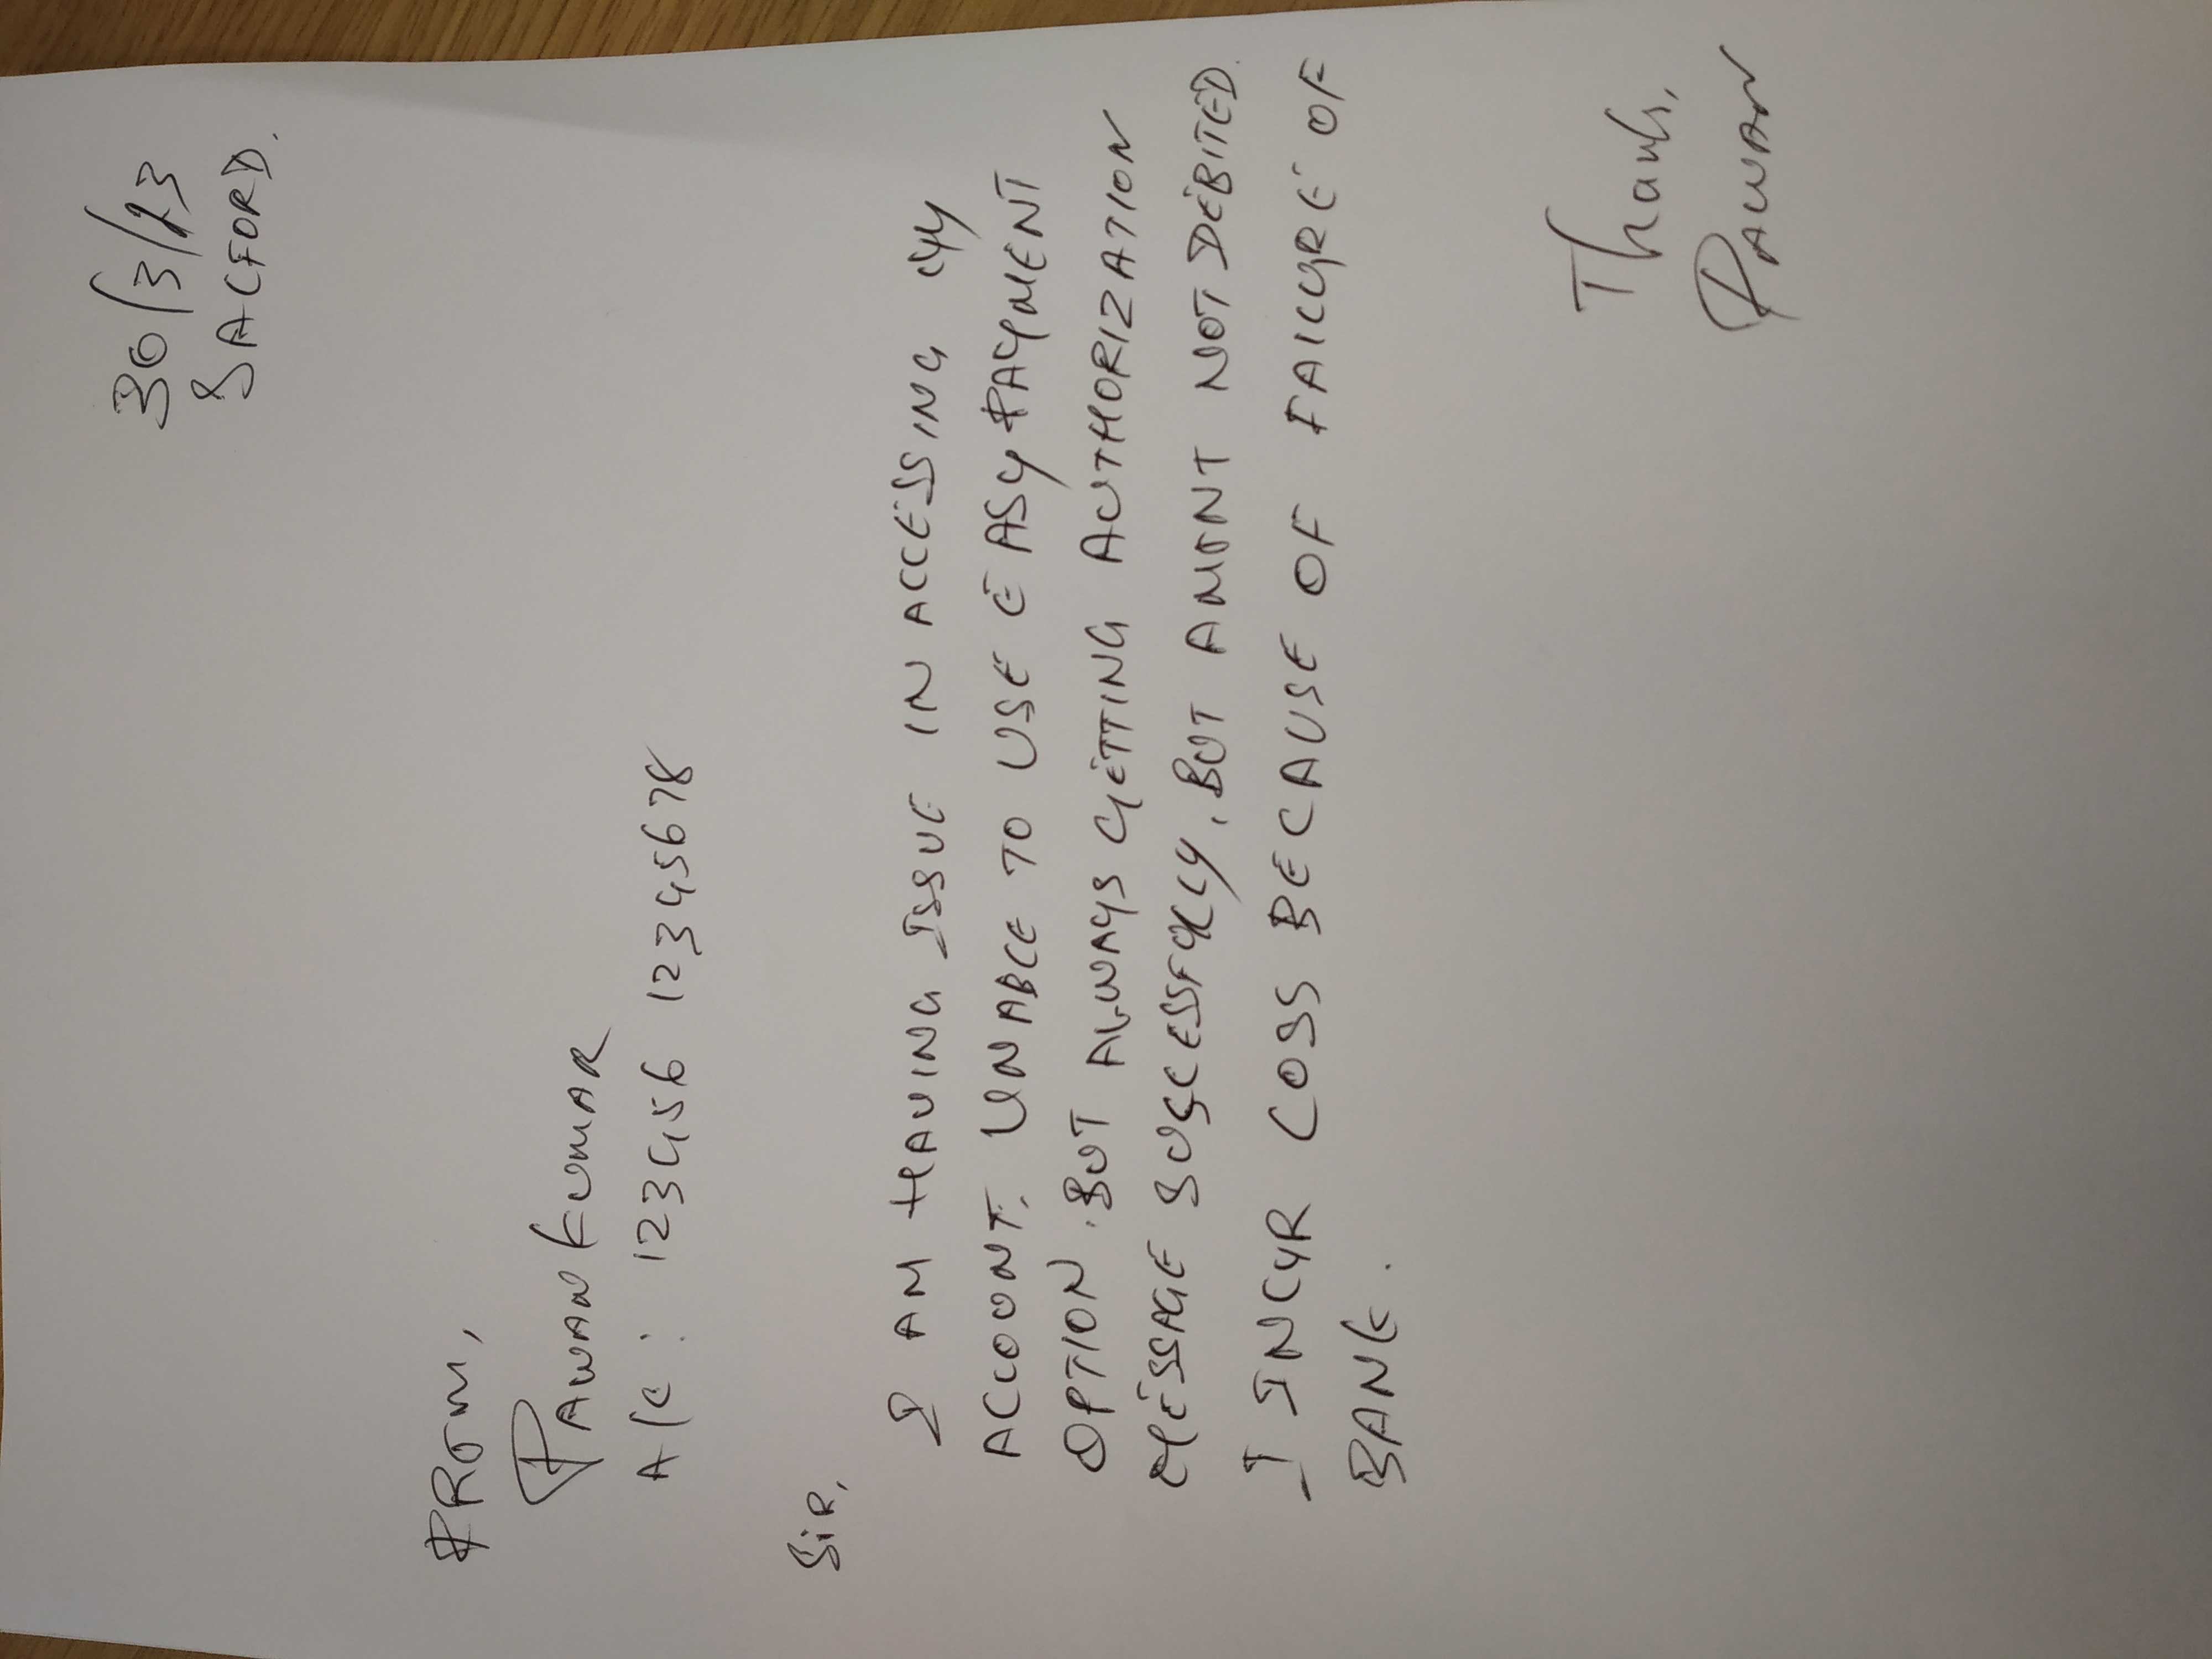 30/3/23
SALFORD.
FROM,
PAWAN KUMAR
A/C : 123456 12345678
SIR,
I AM HAVING ISSUE IN ACCESSING MY
ACCOUNT. UNABLE TO USE EASY PAYMENT
OPTION. BUT ALWAYS GETTING AUTHORIZATION
MESSAGE SUCCESSFULLY, BUT AMONT NOT DEBITED.
I INCUR LOSS BECAUSE OF FAILURE OF
BANK.
Thanks,
PAWAN